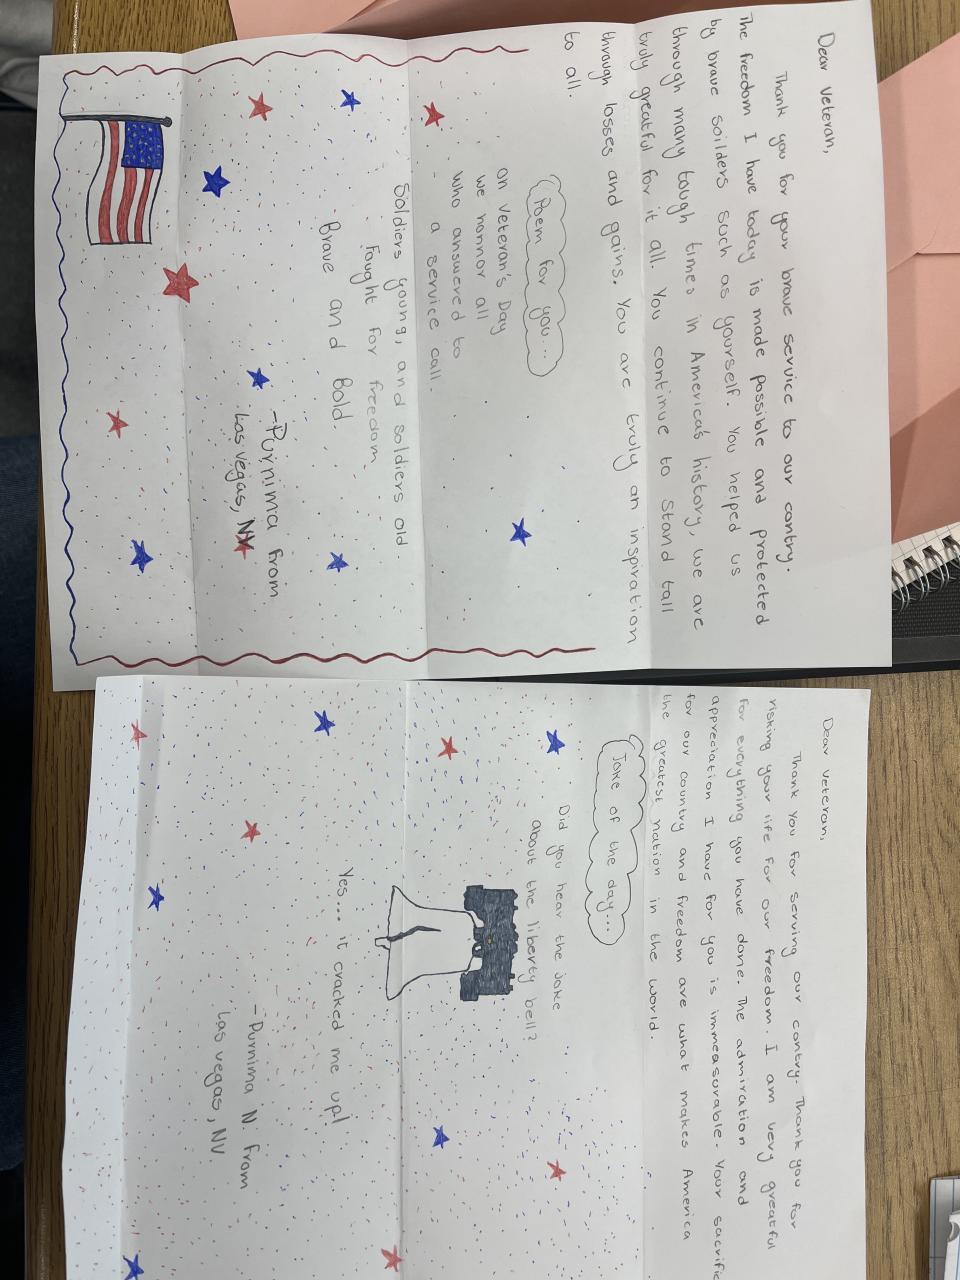 Dear veteran,
Thank you for your brave service to our contry.
The freedom I have today is made possible and protected
by brave soilders such as yourself. You helped us
through many tough times in America's history, we are
truly greatful for it all. You continue to Stand tall
through losses and gains. You are truly an inspiration
to all.
Poem for you...
on veteran's Day
we honnor all
who answered to
a service call.
Soldiers young, and soldiers old
Fought for freedom
Brave and Bold.
-Purnima from
Las vegas, NV
Dear veteran,
Thank You for serving our contry. Thank you for
risking your life for our freedom. I am very greatful
for everything you have done. The admiration and
appreciation I have for you is immeasurable. Your
for our country and freedom are what makes America
the greatest nation in the world.
Joke of the day...
Did you hear the joke
about the liberty bell?
Yes... it cracked me up!
-Purnima N from
Las vegas, NV